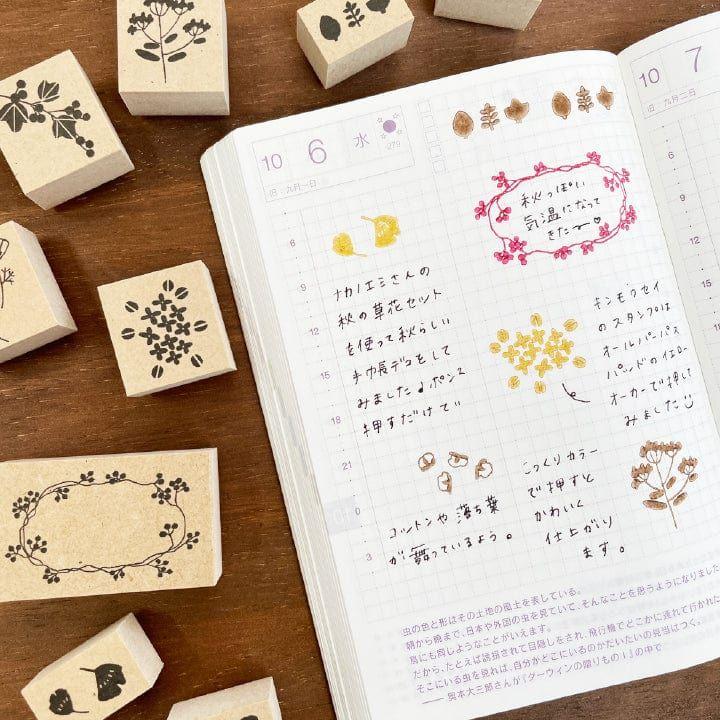 10 6 水
279
旧：九月一日
秋っぽい
気温になって
きたー♡
6
9
12
15
18
21
0
3
ナカノエミさんの
秋の草花セット
を使って秋らしい
手帳デコをして
みました♩ポンと
押すだけで
キンモクセイ
のスタンプは
オールパーパス
パンドのイエロー
オーカーで押して
みました
コットンや落ち葉
が舞っているよう。
こっくりカラー
で押すと
かわいく
仕上がり
ます。
虫の色と形はその土地の風土を表している。
朝から晩まで、日本や外国の虫を見ていて、そんなことを思うようになりました
鳥にも同じようなことがいえます。
だから、たとえば誘拐されて目隠しをされ、飛行機でどこかに連れて行かれた
そこにいる虫を見れば、自分がどこにいるのかだいたいの見当はつく。
—— 奥本大三郎さんが『ダーウィンの贈りものⅠ』の中で
10 7
旧：九月二日
6
9
12
15